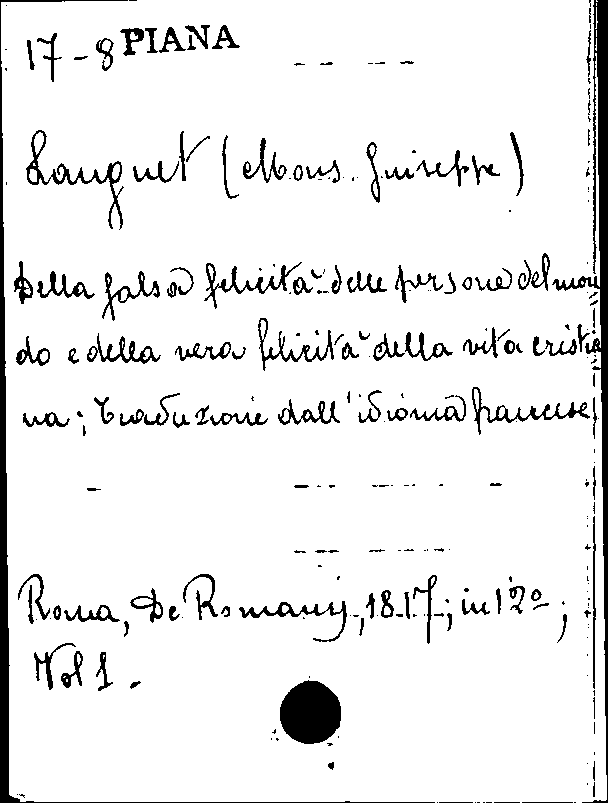 17-8 PIANA
Languet (Mons. Giuseppe)
Della falsa felicità delle persone del mon
do e della vera felicità della vita cristia
na; Traduzione dall'idioma francese.
Roma, De Romanis, 1817; in 12º;
Vol 1.